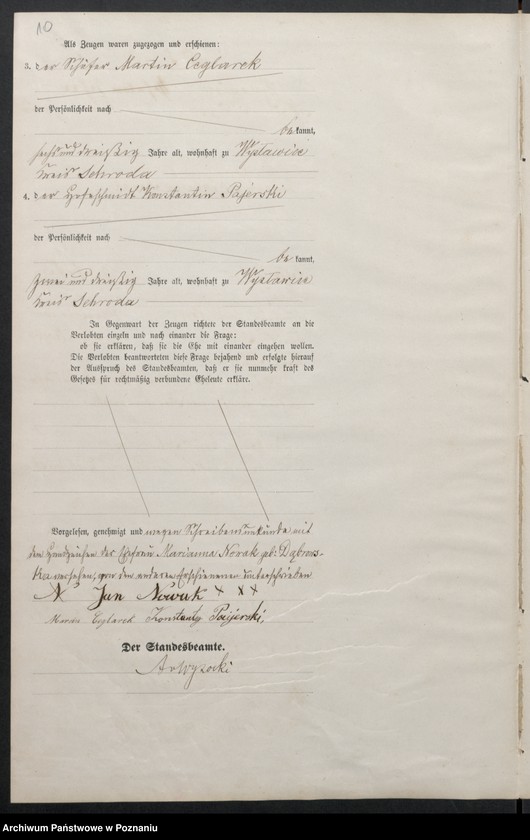 10
Als Zeugen waren zugezogen und erschienen:
3. der Schäfer Martin Ceglarek
der Persönlichkeit nach
be kannt,
sechs und dreißig Jahre alt, wohnhaft zu Wyslawice
Kreis Schroda
4. der Hofschmidt Konstantin Pajerski
der Persönlichkeit nach
be kannt,
zwei und dreißig Jahre alt, wohnhaft zu Wyslawice
Kreis Schroda
In Gegenwart der Zeugen richtete der Standesbeamte an die
Verlobten einzeln und nach einander die Frage:
ob sie erklären, daß sie die Ehe mit einander eingehen wollen.
Die Verlobten beantworteten diese Frage bejahend und erfolgte hierauf
der Ausspruch des Standesbeamten, daß er sie nunmehr kraft des
Gesetzes für rechtmäßig verbundene Eheleute erkläre.
Vorgelesen, genehmigt und wegen Schreibensunkunde mit
den Handzeichen der Ehefrau Marianna Nowak geb: Dąbrows-
ka versehen, von den anderen Erschienenen unterschrieben
Jan Nowak × × ×
Ceglarek Konstanty Pajerski,
Der Standesbeamte.
Archiwum Państwowe w Poznaniu